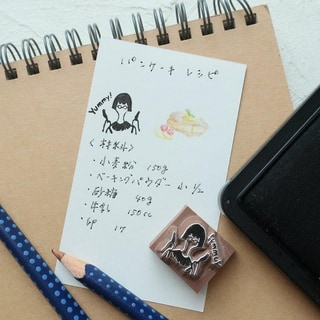 パンケーキ レシピ
Yummy!
〈材料〉
・小麦粉 150g
・ベーキングパウダー 小 1/2
・砂糖 40g
・牛乳 150cc
・卵 1ケ
Yummy!